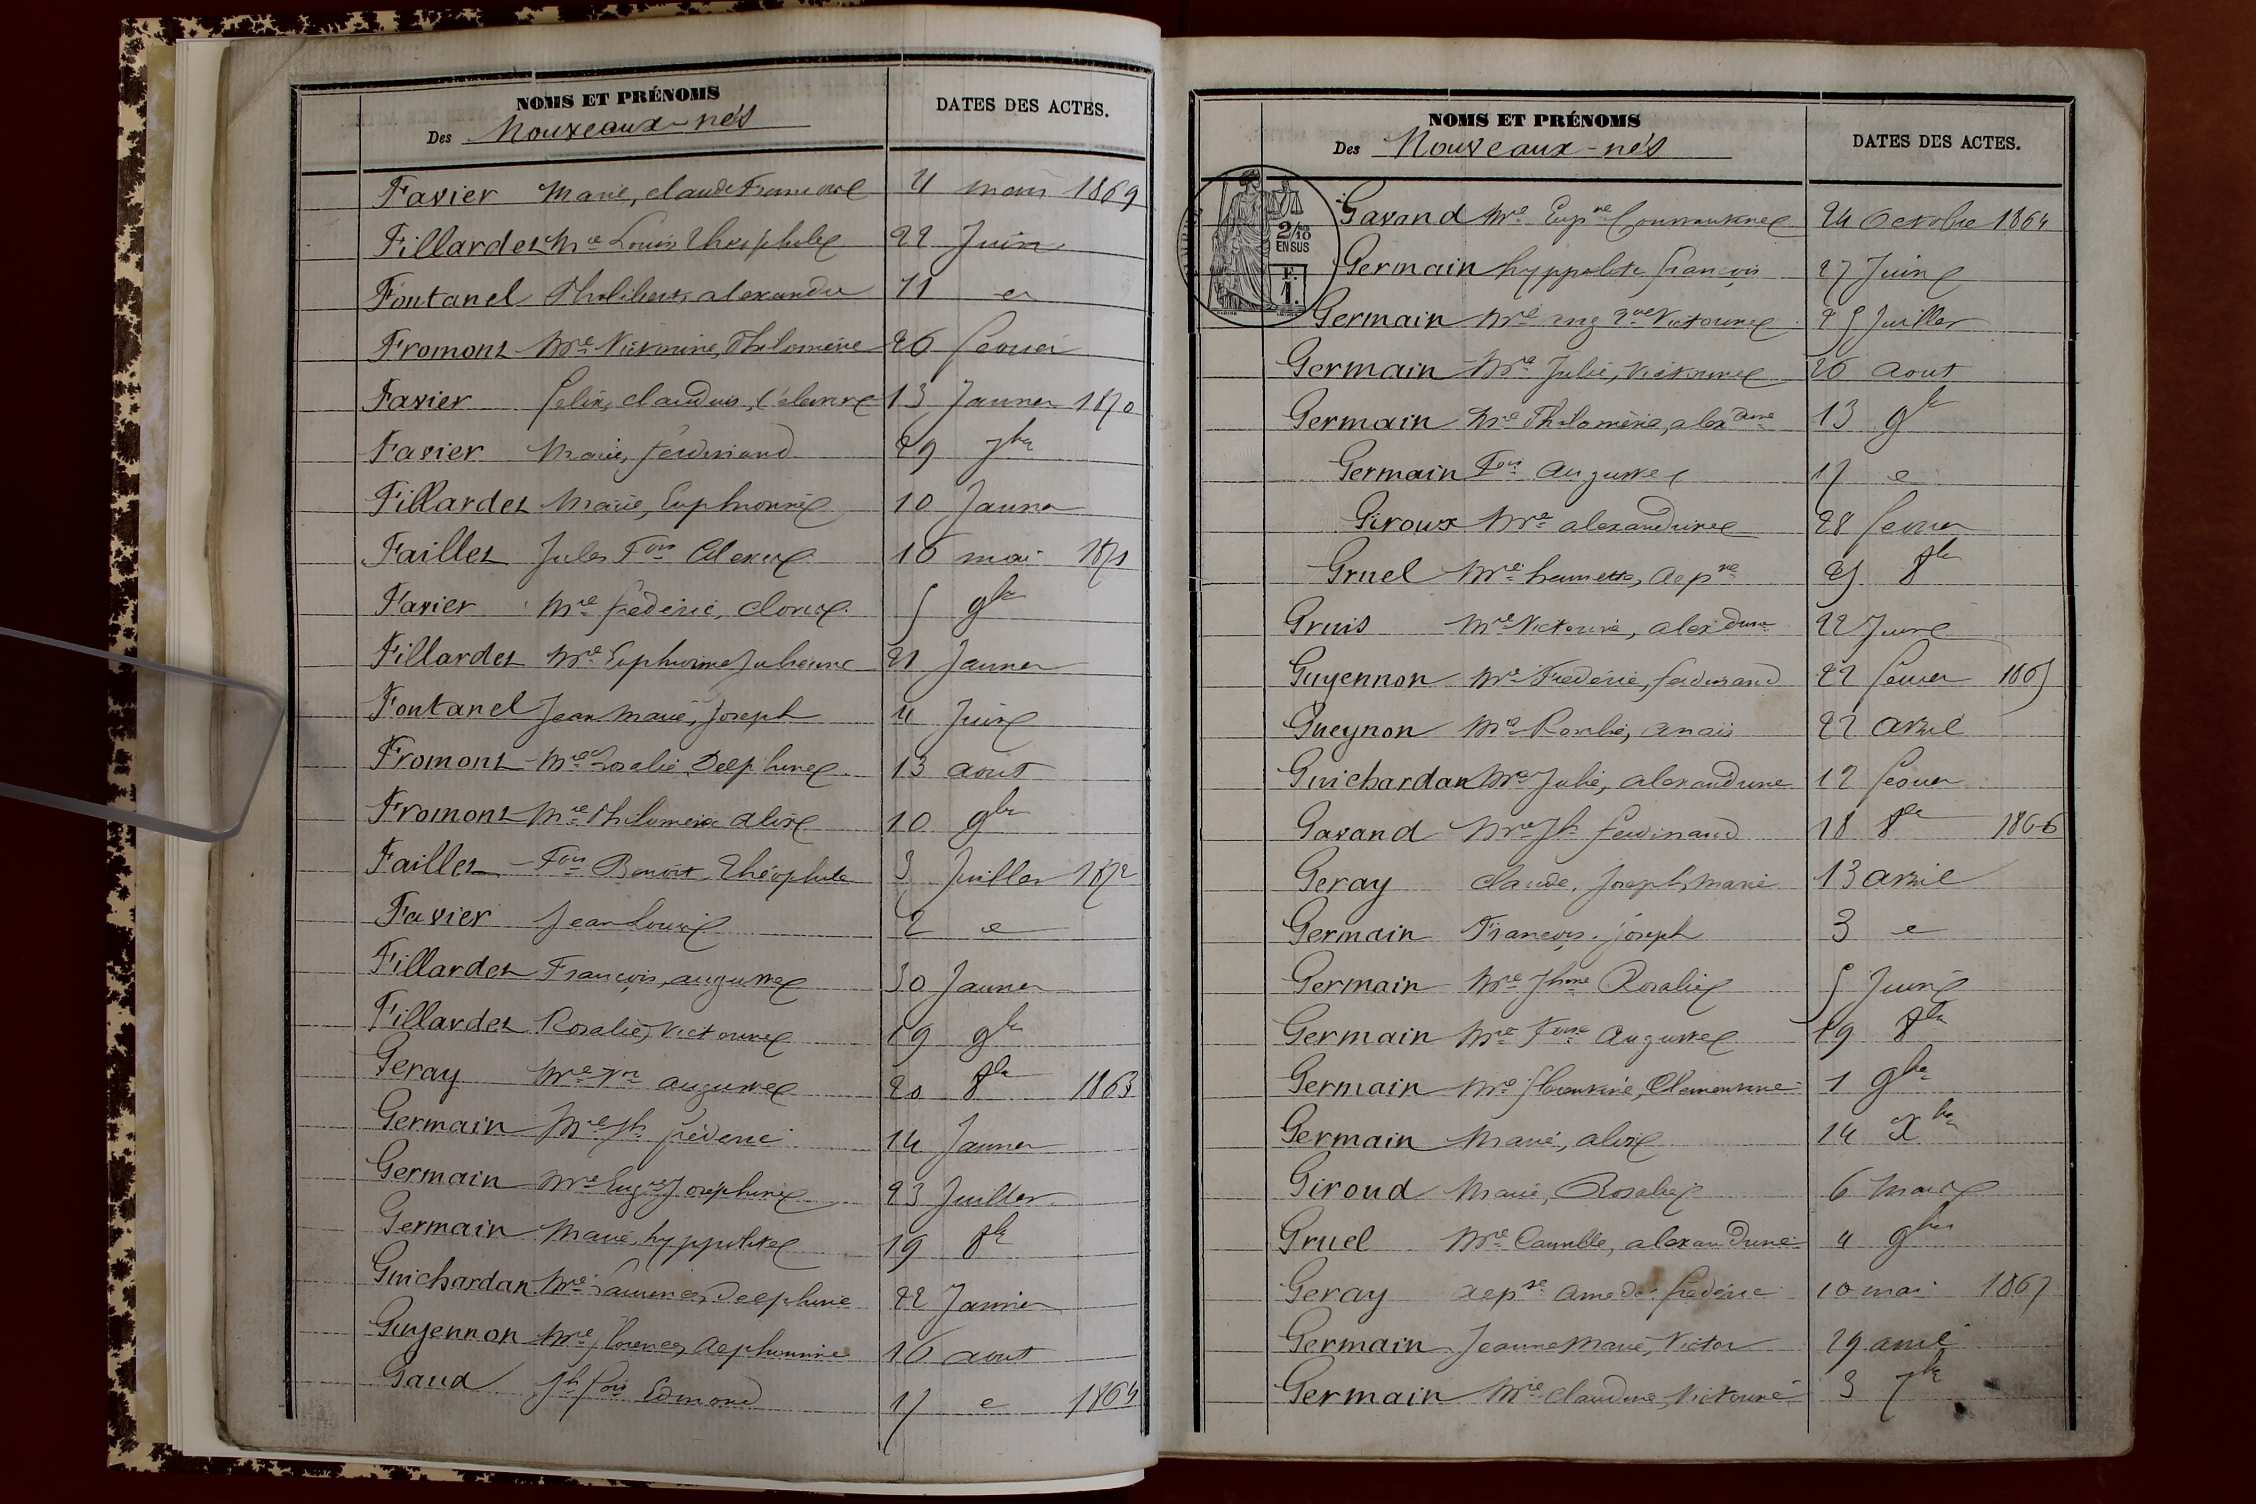 NOMS ET PRÉNOMS
Des Nouveaux-nés
DATES DES ACTES.
Favier Marie, claude Francois 4 mars 1869
Fillardet Mie Louis Théophile 22 Juin
Fontanel Philibert, alexandre 11 e
Fromont Mie Victorine, Philomène 26 fevrier
Favier felix, claudius, 13 Janvier 1870
Favier Marie, ferdinand 29 7bre
Fillardet Marie, Euphrosine 10 Janvier
Faillet Jules Fois 16 mai 1871
Favier Mie frédéric, 5 9bre
Fillardet Mie Euphrosine Julienne 21 Janvier
Fontanel Jean Marie, Joseph 4 Juin
Fromont Mie Rosalie Delphine 13 aout
Fromont Mie Philomène alix 10 9bre
Faillet Fois Benoit Théophile 3 Juillet 1872
Favier Jean Louis 2 e
Fillardet François, auguste 30 Janvier
Fillardet Rosalie, Victorine 19 9bre
Geray Mie auguste 20 8bre 1863
Germain Mie Jh frédéric 14 Janvier
Germain Mie Eugne Joséphine 23 Juillet
Germain Marie, hyppolite 19 8bre
Guichardan Mie Laurence, Delphine 22 Janvier
Guyennon Mie florence, 16 aout
Gaud Jh fois Edmond 17 e 1864
NOMS ET PRÉNOMS
Des Nouveaux-nés
DATES DES ACTES.
2/10 EN SUS
F. 1.
Gavand Mie 24 Octobre 1864
Germain hyppolite françois 27 Juin
Germain Mie Victorine 25 Juillet
Germain Mie Julie, Victorine 26 aout
Germain Mie Philomène, alexdrine 13 9bre
Germain Fois auguste 17 e
Giroux Mie alexandrine 28 fevrier
Gruel Mie henriette, 25 8bre
Gruis Mie Victorine, alexdrine 22 Juin
Guyennon Mie Frédéric, ferdinand 22 fevrier 1865
Gueynon Mie Rosalie, anaïs 22 avril
Guichardan Mie Julie, alexandrine 12 fevrier
Gavand Mie Jh ferdinand 18 8bre 1866
Geray claude, Joseph, Marie 13 avril
Germain François, Joseph 3 e
Germain Mie Jhine Rosalie 5 Juin
Germain Mie Foise auguste 19 8bre
Germain Mie florentine, Clementine 1 9bre
Germain Marie, alix 14 Xbre
Giroud Marie, Rosalie 6 mars
Gruel Mie Camille, alexandrine 4 9bre
Geray frédéric 10 mai 1867
Germain Jeanne Marie, Victor 29 avril
Germain Mie Claudine, Victorine 3 7bre